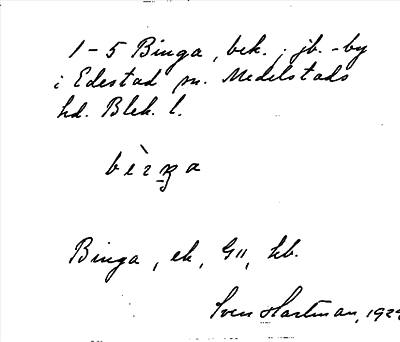 1-5 Binga, bek. jb. -by
i Edestad sn. Medelstads
hd. Blek. l.
Binga, ek, G11, hb.
Sven Hartman, 192